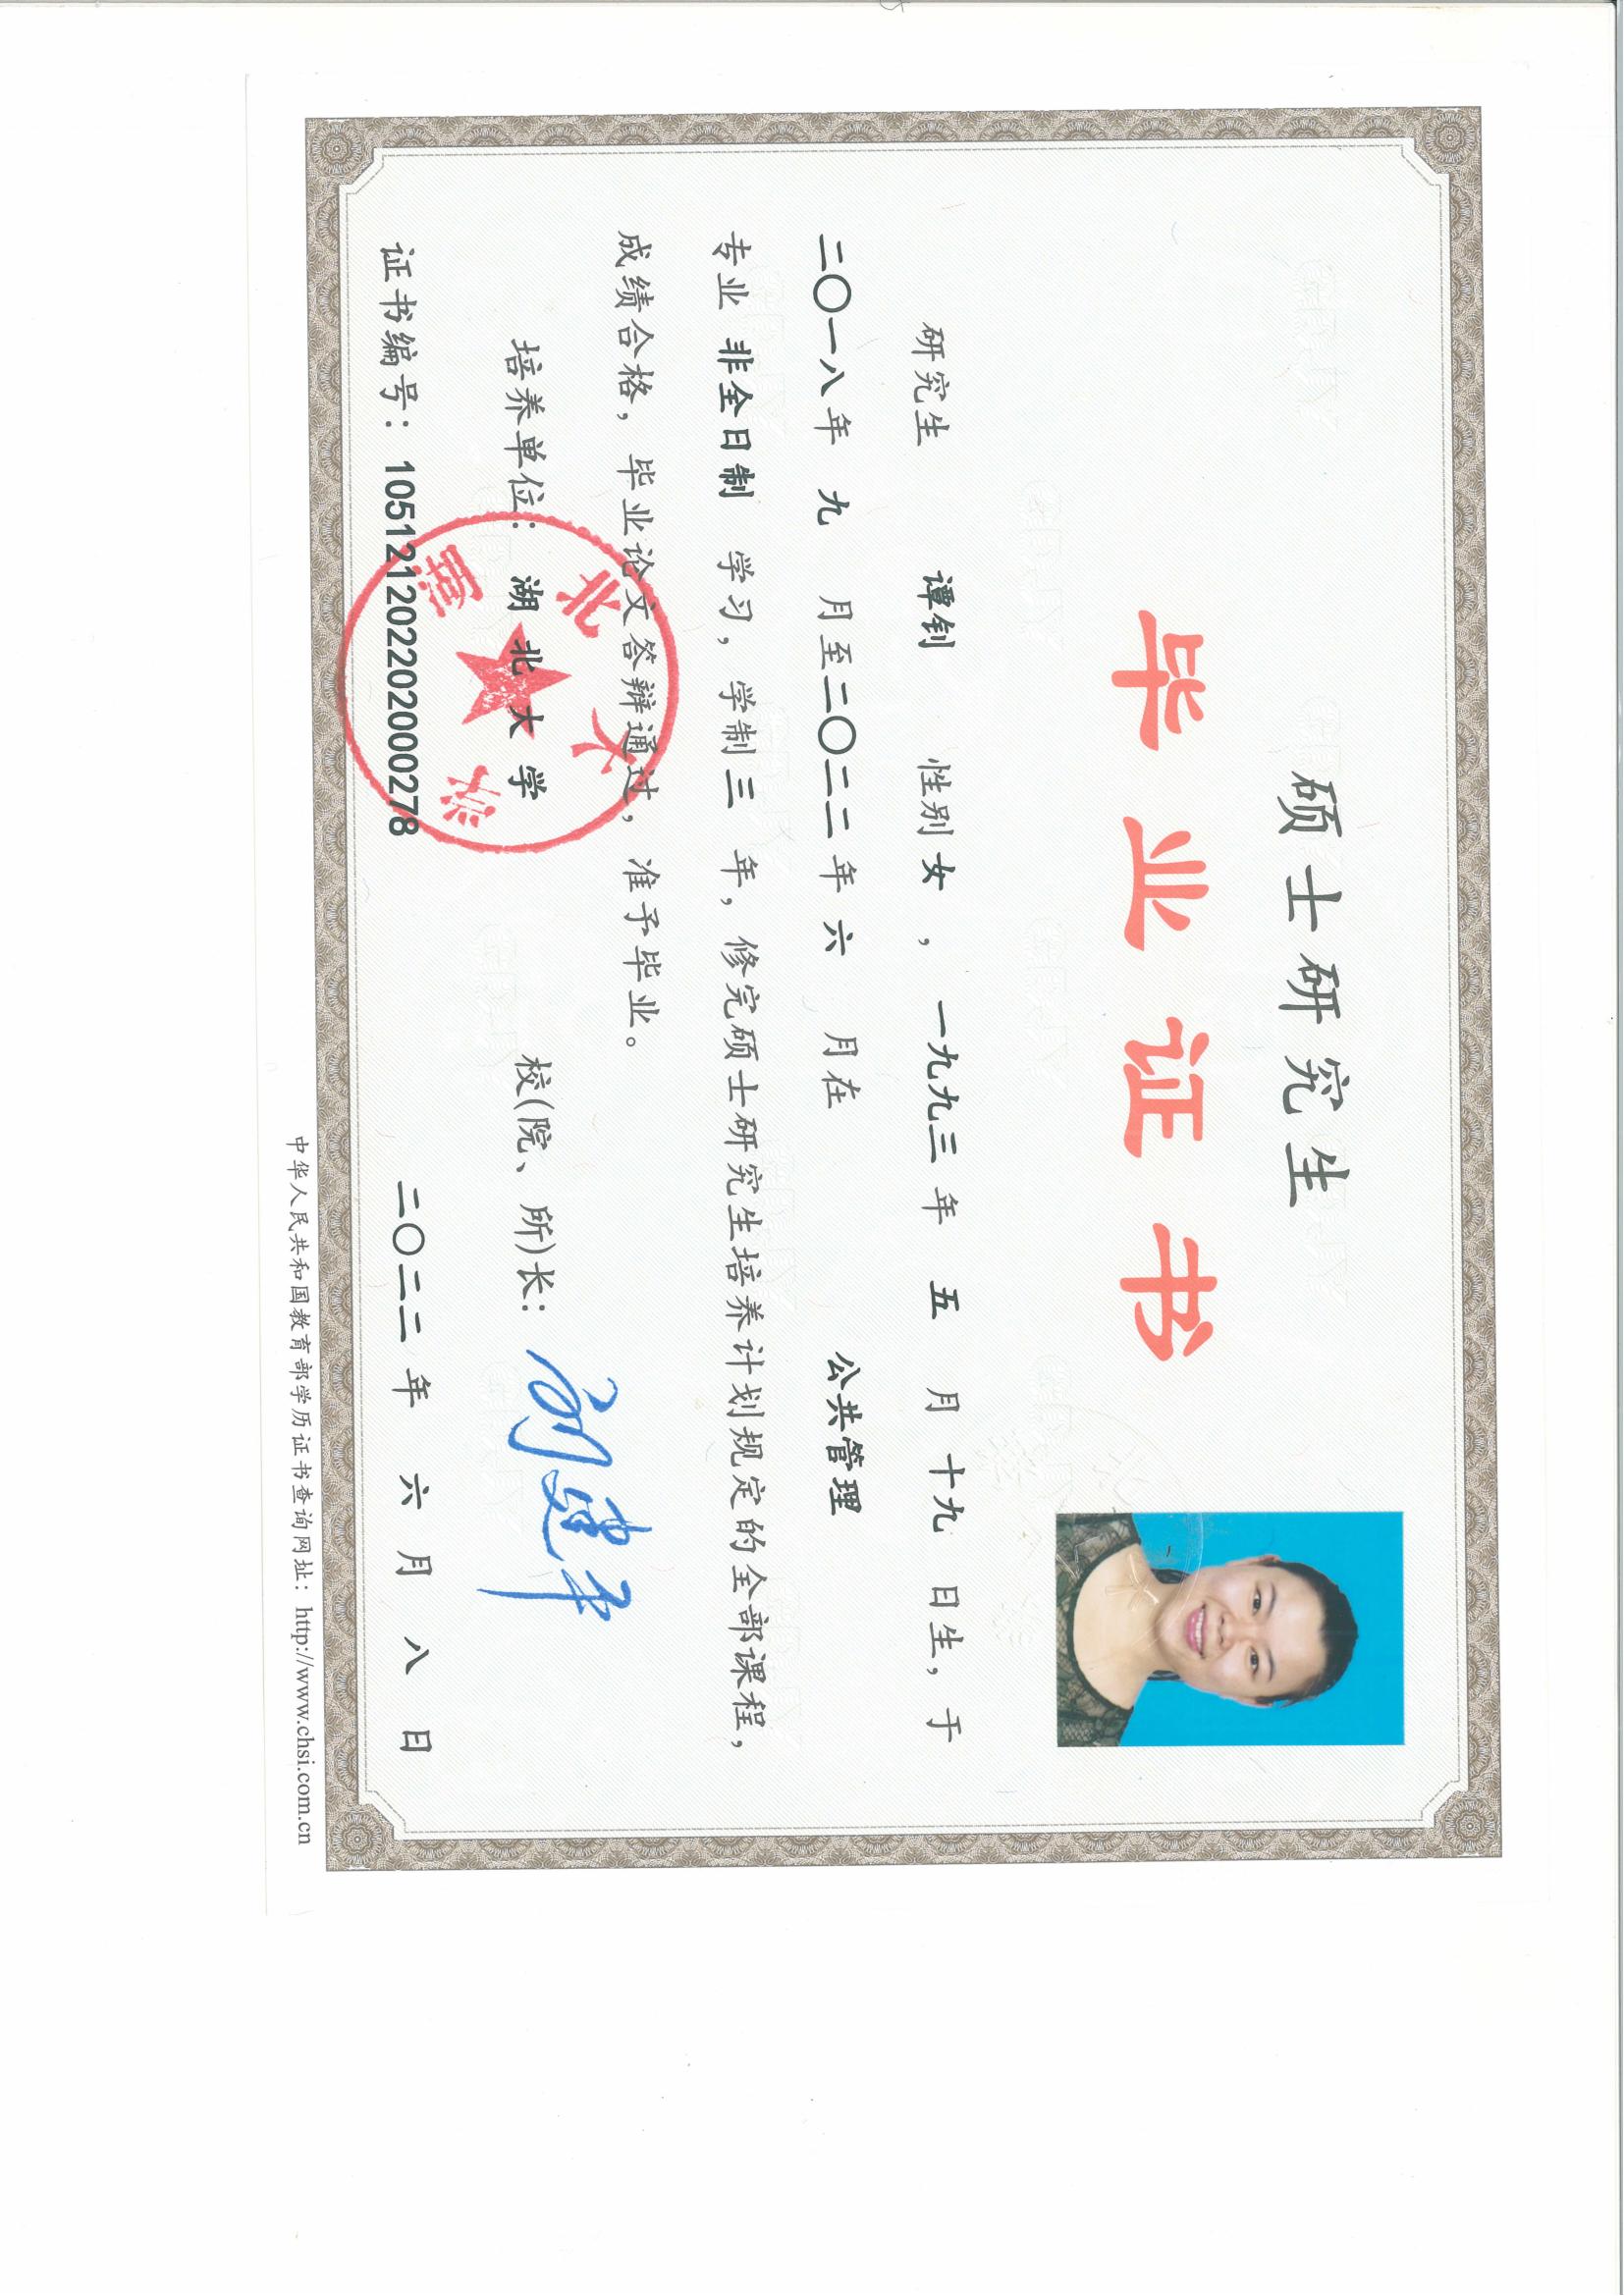 硕士研究生
毕业证书
研究生 谭钊 性别 女 ， 一九九三 年 五 月 十九 日生，于
二〇一八 年 九 月至 二〇二二 年 六 月在 公共管理
专业 非全日制 学习，学制 三 年，修完硕士研究生培养计划规定的全部课程，
成绩合格，毕业论文答辩通过，准予毕业。
培养单位：湖北大学 校(院、所)长：
湖北大学
证书编号：105121202202000278 二〇二二 年 六 月 八 日
中华人民共和国教育部学历证书查询网址：http://www.chsi.com.cn